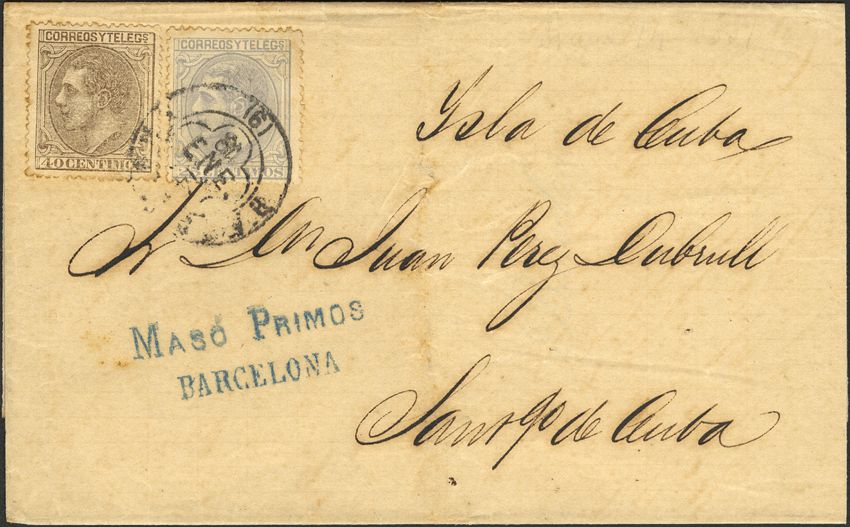 CORREOS Y TELEGS
CORREOS Y TELEGS
40 CENTIMOS
(6)
ENE
Ysla de Cuba
Sr. Dn Juan Perez Dubrull
MASÓ PRIMOS
BARCELONA
Santgo de Cuba